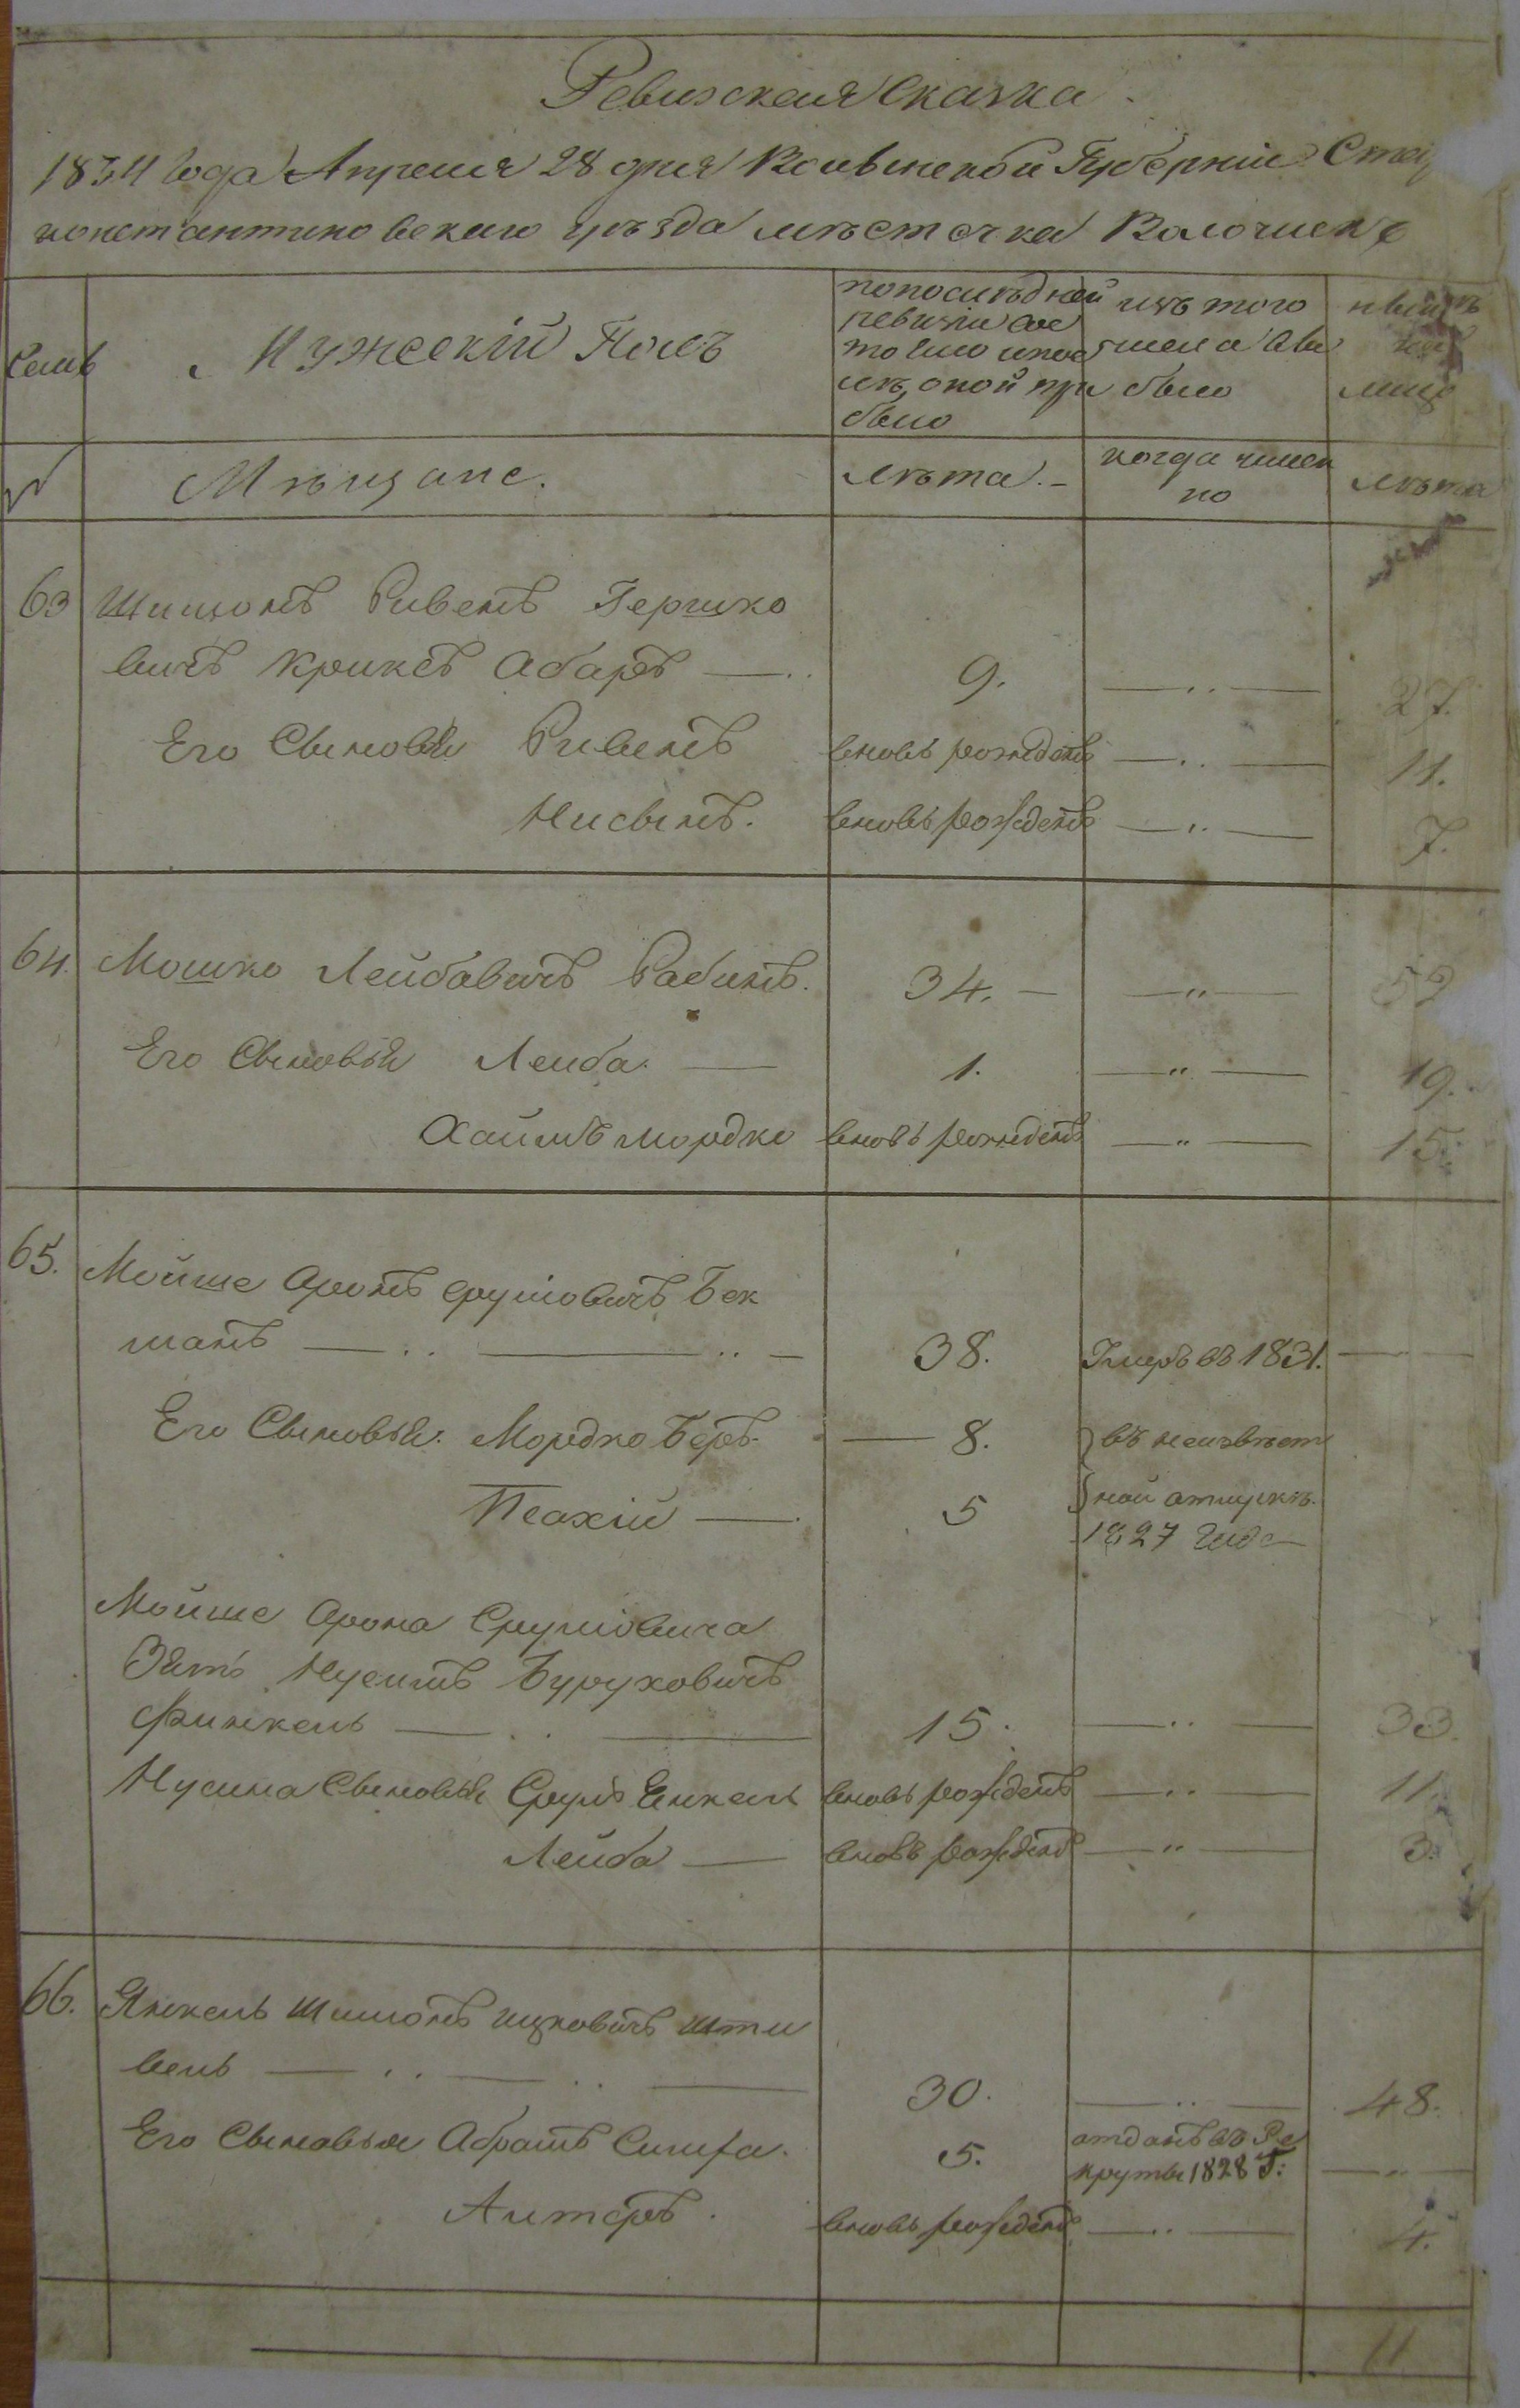 Ревизская Сказка
1834 Года Апреля 28 дня Волынской Губернии Ста
константиновскаго уѣзда мѣсточка Волочискъ
Семьи
Мужескій Полъ
попослѣдней
ревизіи сос
тояло ипос
лѣ оной при
было
изъ того
числа вы
было
нынѣ
лицо
№
Мѣщане.
лѣта.
когда имен
но
лѣта
63 Шимонъ Ривенъ Гершко
вичъ Криксъ Абаръ — 9. — 27.
Его Сыновья Рувенъ вновь рожденъ — 11.
Нисынъ. вновь рожденъ — 7.
64. Мошко Лейбовичъ Рабинъ. 34. — 52
Его Сыновья Лейба. — 1. — 19.
Хаимъ мордко вновь рожденъ — 15.
65. Мойше Аронъ Срулiовичъ Бек
манъ — 38. Умеръ въ 1831. —
Его Сыновья. Мордко Беръ. — 8. въ неизвѣст
Песахій — 5 ной отлучкѣ.
1827 Года
Мойше Арона Сруліовича
Зять Нусинъ Буруховичъ
Финкель — 15. — 33.
Нусина Сыновья Сруль Енкель вновь рожденъ — 11.
Лейба — вновь рожденъ — 3.
66. Янкель Шимонъ ицковичъ Шти
вель — 30. — 48.
Его Сыновья Абрамъ Симха. 5. отданъ въ Ре
круты 1828 Г: —
Алтеръ. вновь рожденъ — 4.
11